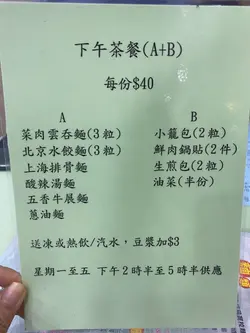 下午茶餐(A+B)
每份$40
A
菜肉雲吞麵(3粒)
北京水餃麵(3粒)
上海排骨麵
酸辣湯麵
五香牛展麵
蔥油麵
B
小籠包(2粒)
鮮肉鍋貼(2件)
生煎包(2粒)
油菜(半份)
送凍或熱飲/汽水，豆漿加$3
星期一至五 下午2時半至5時半供應